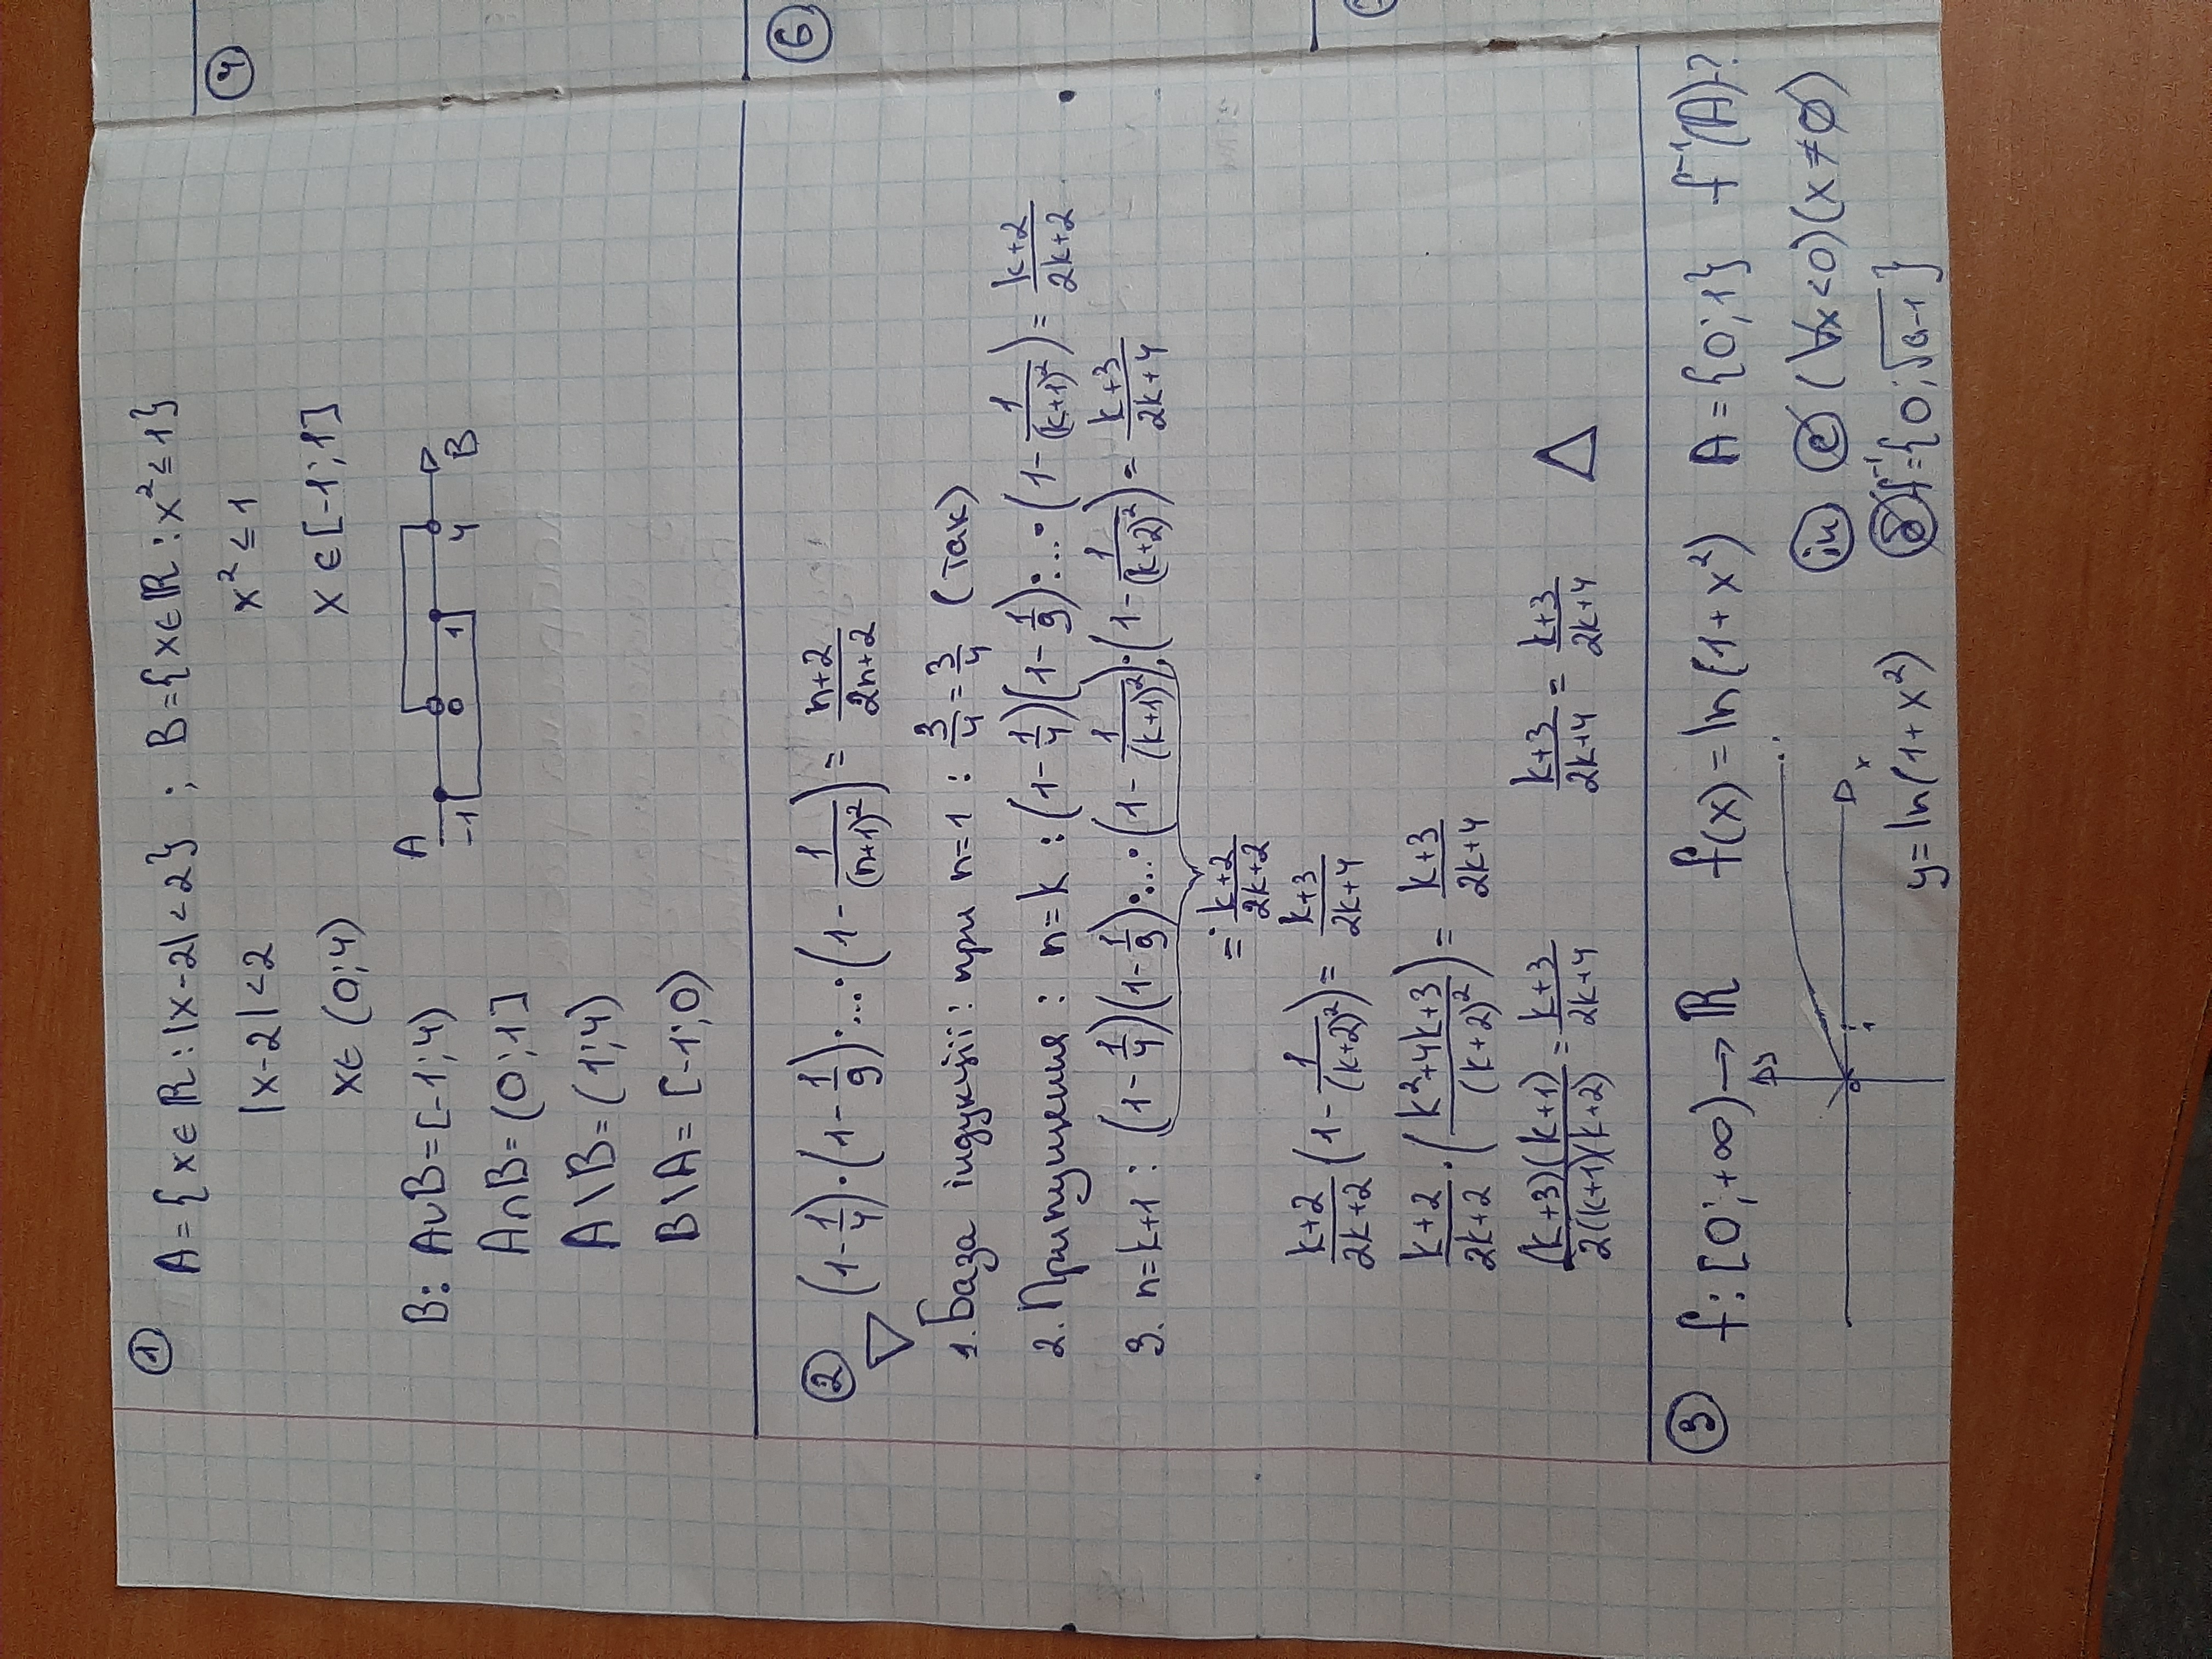 ① A = { x ∈ ℝ : |x-2| < 2 } ; B = { x ∈ ℝ : x² ≤ 1 }
|x-2| < 2
x² ≤ 1
x ∈ (0; 4)
x ∈ [-1; 1]
B: A∪B = [-1; 4)
A
-1 0 1 4 B
A∩B = (0; 1]
A \ B = (1; 4)
B \ A = [-1; 0)
② (1 - 1/4) · (1 - 1/9) · ... · (1 - 1/(n+1)²) = (n+2)/(2n+2)
▽
1. База індукції: при n=1 : 3/4 = 3/4 (так)
2. Припущення : n=k : (1 - 1/4)(1 - 1/9) · ... · (1 - 1/(k+1)²) = (k+2)/(2k+2)
3. n=k+1 : (1 - 1/4)(1 - 1/9) · ... · (1 - 1/(k+1)²) · (1 - 1/(k+2)²) = (k+3)/(2k+4)
= (k+2)/(2k+2)
(k+2)/(2k+2) (1 - 1/(k+2)²) = (k+3)/(2k+4)
(k+2)/(2k+2) · ((k²+4k+3)/(k+2)²) = (k+3)/(2k+4)
(k+3)(k+1)/2(k+1)(k+2) = (k+3)/(2k+4) (k+3)/(2k+4) = (k+3)/(2k+4) △
③ f: [0; +∞) → ℝ f(x) = ln(1+x²) A = {0; 1} f⁻¹(A)-?
y
0 1 x
(∀x<0)(x≠∅)
y = ln(1+x²)
f⁻¹ = {0; √e-1}
④
⑥